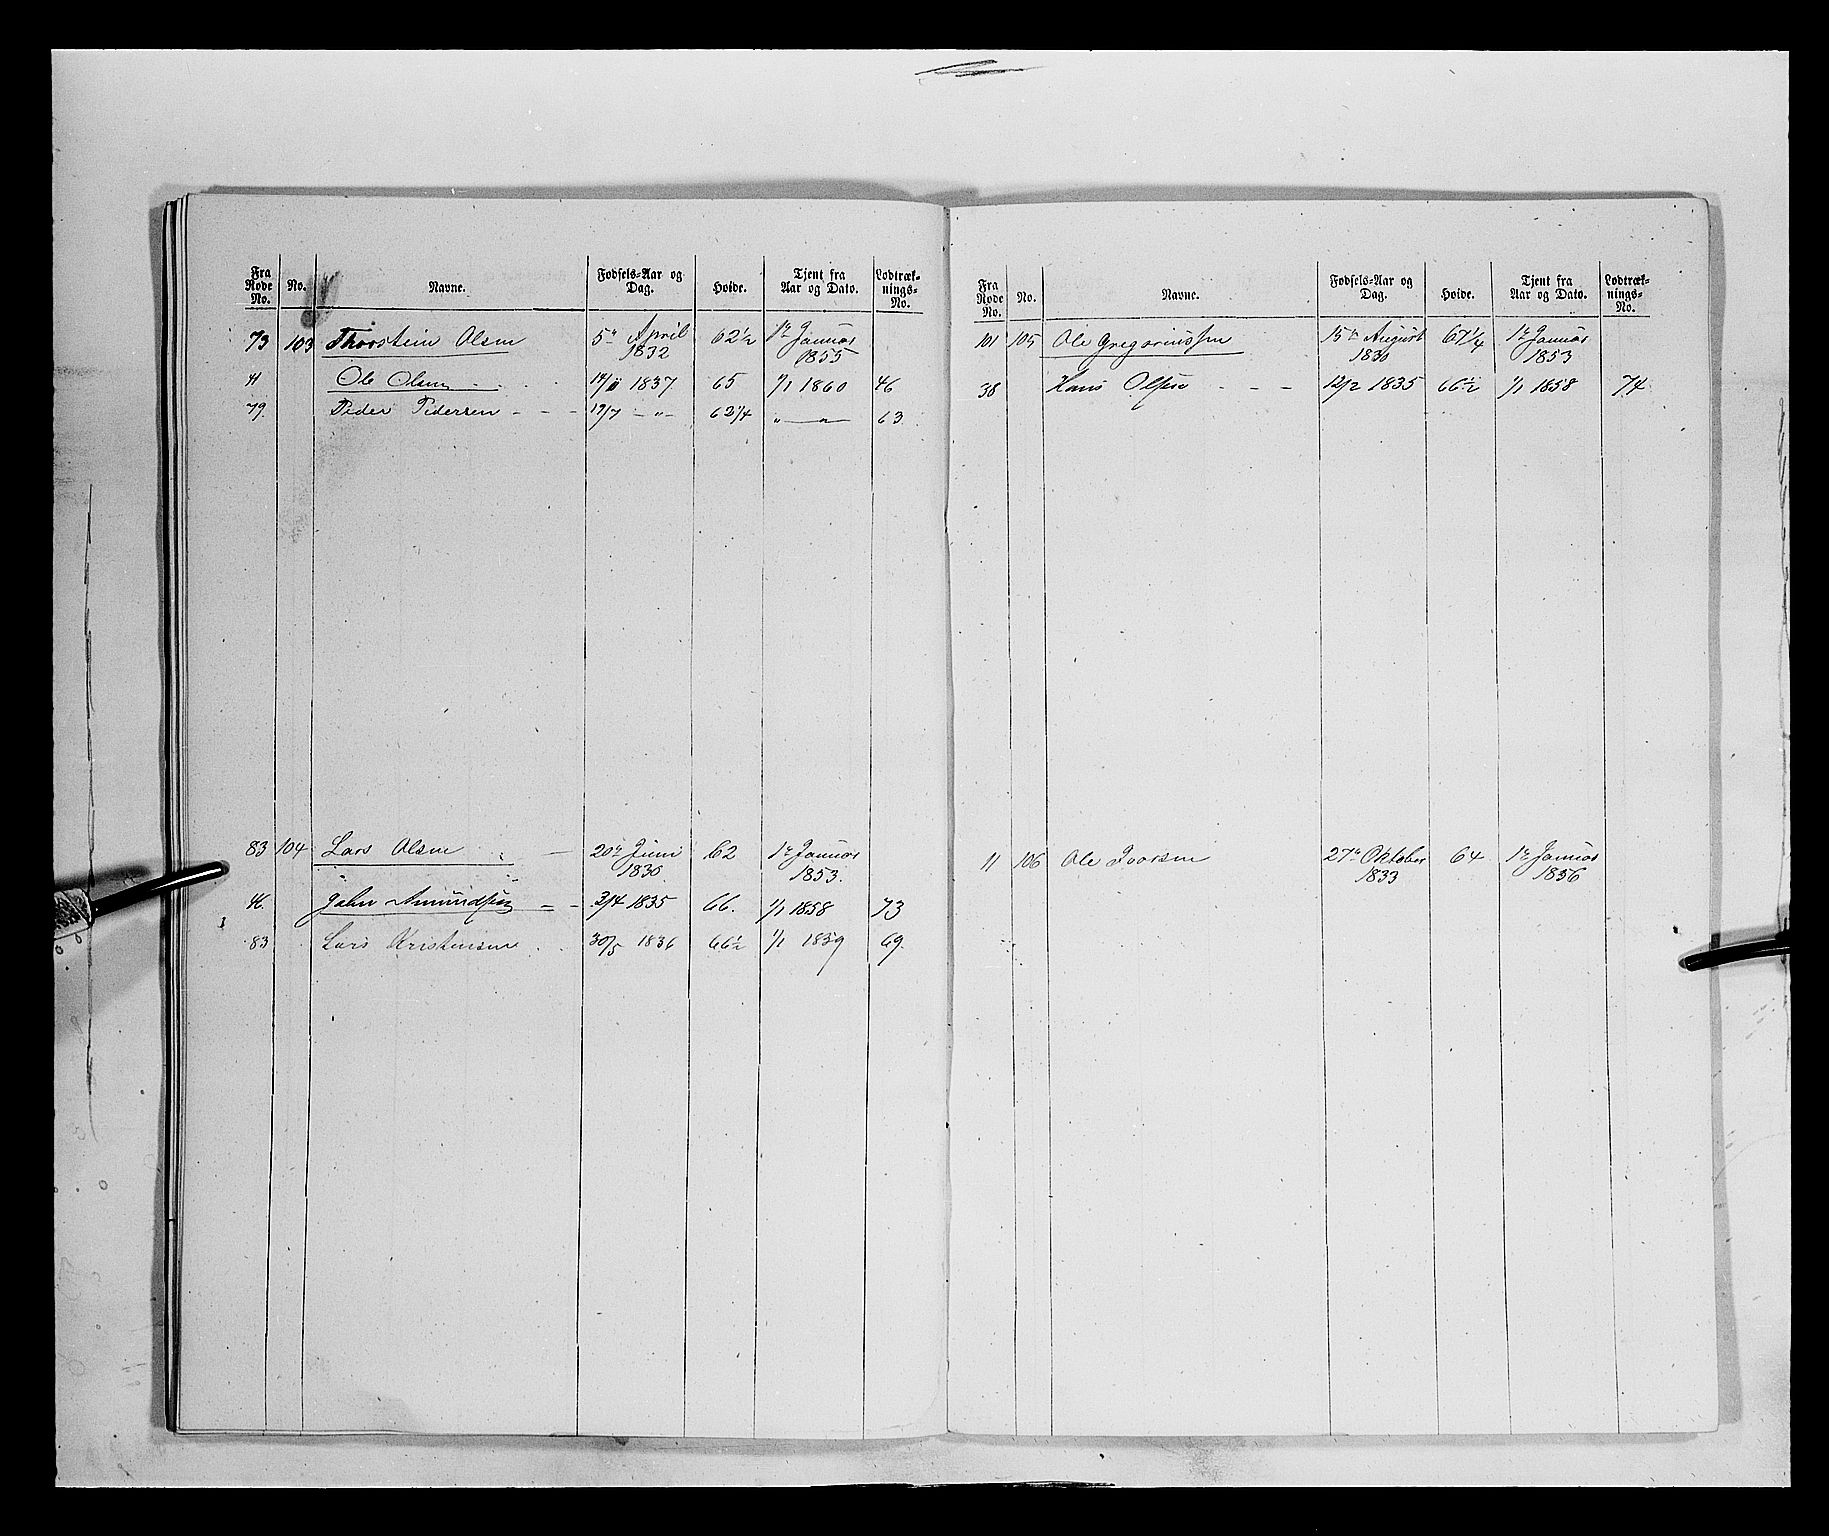 Fra Rode No. No. Navne. Fødsels-Aar og Dag. Høide. Tjent fra Aar og Dato. Lodtræk-nings-No.
73 103 Thorstein Olsen 5te April 1832 62½ 1te Januar 1855
Ole Olsen 1837 65 1/1 1860 46
79. Peder Pedersen - - - 19/7 -"- 62¼ "—" 63
83 104 Lars Olsen — 20de Juni 1830. 62 1te Januar 1853.
John Amundsen - - 2/4 1835 66. 1/1 1858 73
83 Lars Kristensen 30/5 1836 66½ 1/1 1859 69.
Fra Rode No. No. Navne. Fødsels-Aar og Dag. Høide. Tjent fra Aar og Dato. Lodtræk-nings-No.
101 105 Ole Gregoriussen 15de August 1830 67¼ 1te Januar 1853
38 Hans Olsen - - - 12/2 1835 66½ 1/1 1858 74
11 106 Ole Ivarsen 27de Oktober 1833 64 1te Januar 1856